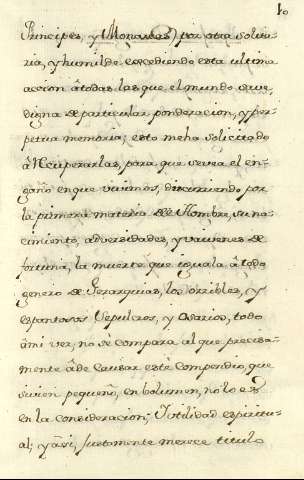 10
Principes, y Monarcas) por otra solita-
ria, y humilde excediendo esta ultima
accion â todas las que el mundo tuvo
digna de particular ponderacion, y per-
petua memoria; esto me ha solicitado
â Recuperarlas, para que se vea el en-
gaño en que vivimos, discurriendo por
la primera materia del Hombre, su na-
cimiento, adversidades, y vaivenes de
fortuna, la muerte que iguala â todo
genero de Gerarquias, los orribles, y
espantosos Sepulcros, y Osarios, todo
â mi ver, no se compara al que precisa-
mente â de causar este compendio, que
si vien pequeño, en bolumen, no lo es
en la consideracion, Vtilidad espiritu-
al; y assi, justamente merece titulo